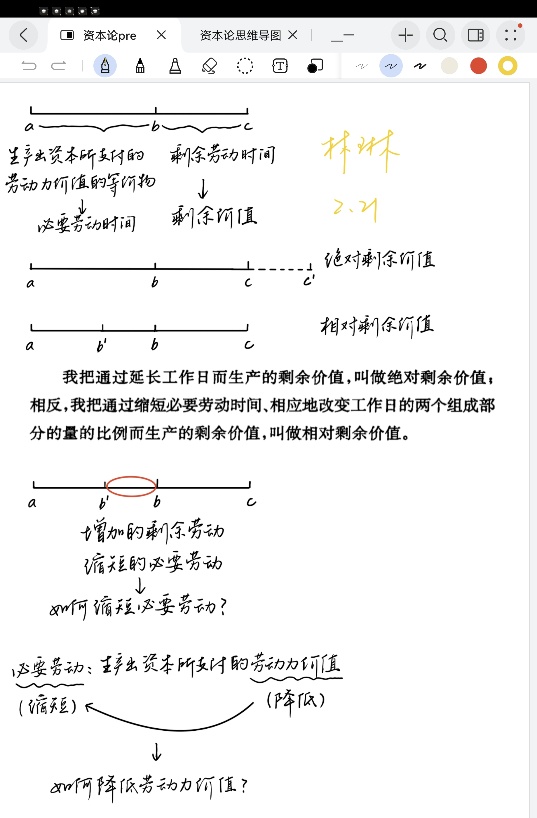 资本论pre
资本论思维导图
a b c
生产出资本所支付的
劳动力价值的等价物
必要劳动时间
剩余劳动时间
剩余价值
林琳
2.21
a b c c'
绝对剩余价值
a b' b c
相对剩余价值
我把通过延长工作日而生产的剩余价值,叫做绝对剩余价值;
相反,我把通过缩短必要劳动时间、相应地改变工作日的两个组成部
分的量的比例而生产的剩余价值,叫做相对剩余价值。
a b' b c
增加的剩余劳动
缩短的必要劳动
如何缩短必要劳动?
必要劳动:生产出资本所支付的劳动力价值
(缩短) (降低)
如何降低劳动力价值?